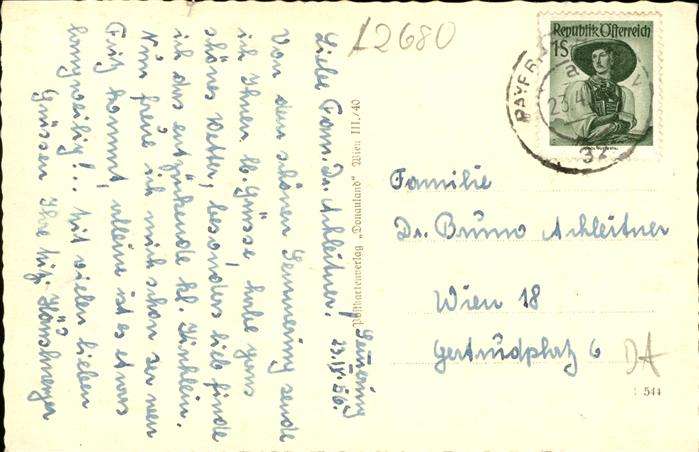 L2680
Republik Österreich
1S
PAYERB
23.4
32
Semmering
23.IV.56.
Liebe Fam. Dr. Achleitner!
Von dem schönen Semmering sende
ich Ihnen lb. Grüsse, habe ganz
schönes Wetter, besonders lieb finde
ich das entzückende kl. Kirchlein.
Nun freue ich mich schon ser wen
Fritz kommt, alleine ist es etwas
langweilig!.. Mit vielen lieben
Grüssen Ihre
Postkartenverlag „Donauland" Wien III./40
Familie
Dr. Bruno Achleitner
Wien 18
Gertrudplatz 6
DA
544